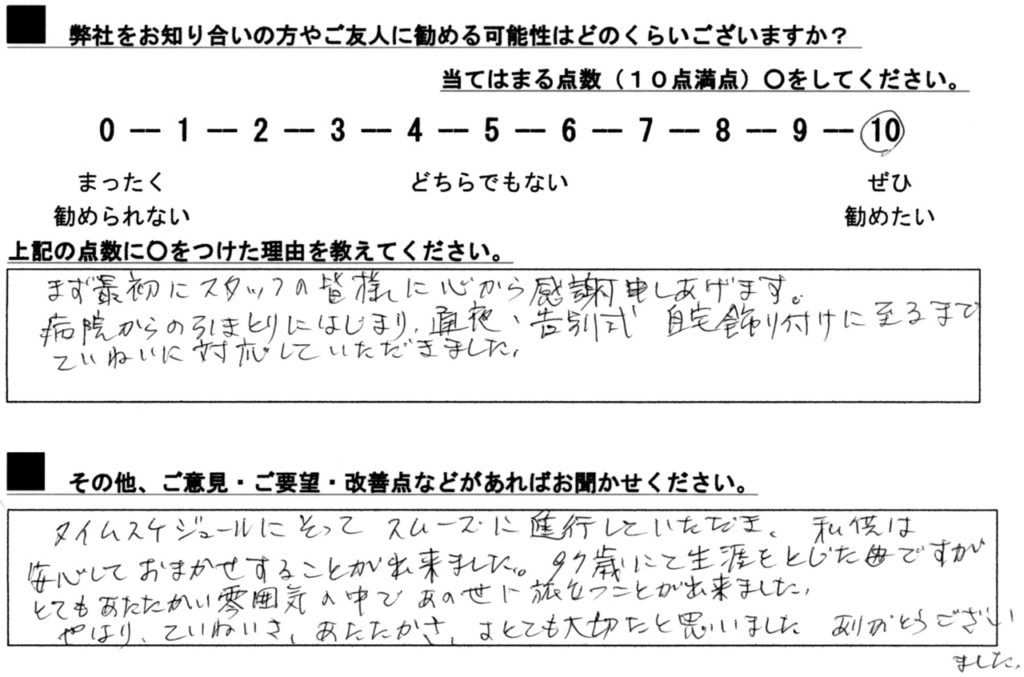 弊社をお知り合いの方やご友人に勧める可能性はどのくらいございますか？
当てはまる点数（１０点満点）〇をしてください。
0 — 1 — 2 — 3 — 4 — 5 — 6 — 7 — 8 — 9 — 10
まったく どちらでもない ぜひ
勧められない 勧めたい
上記の点数に〇をつけた理由を教えてください。
まず最初にスタッフの皆様に心から感謝申しあげます。
病院からの引まとりにはじまり、通夜、告別式 自宅飾り付けに至るまで
ていねいに対応していただきました。
その他、ご意見・ご要望・改善点などがあればお聞かせください。
タイムスケジュールにそって スムーズに進行していただき、私供は
安心しておまかせすることが出来ました。97歳にて生涯をとじた母ですが
とてもあたたかい雰囲気の中であの世に旅立つことが出来ました。
やはり、ていねいさ、あたたかさ、はとても大切だと思いました ありがとうござい
ました。